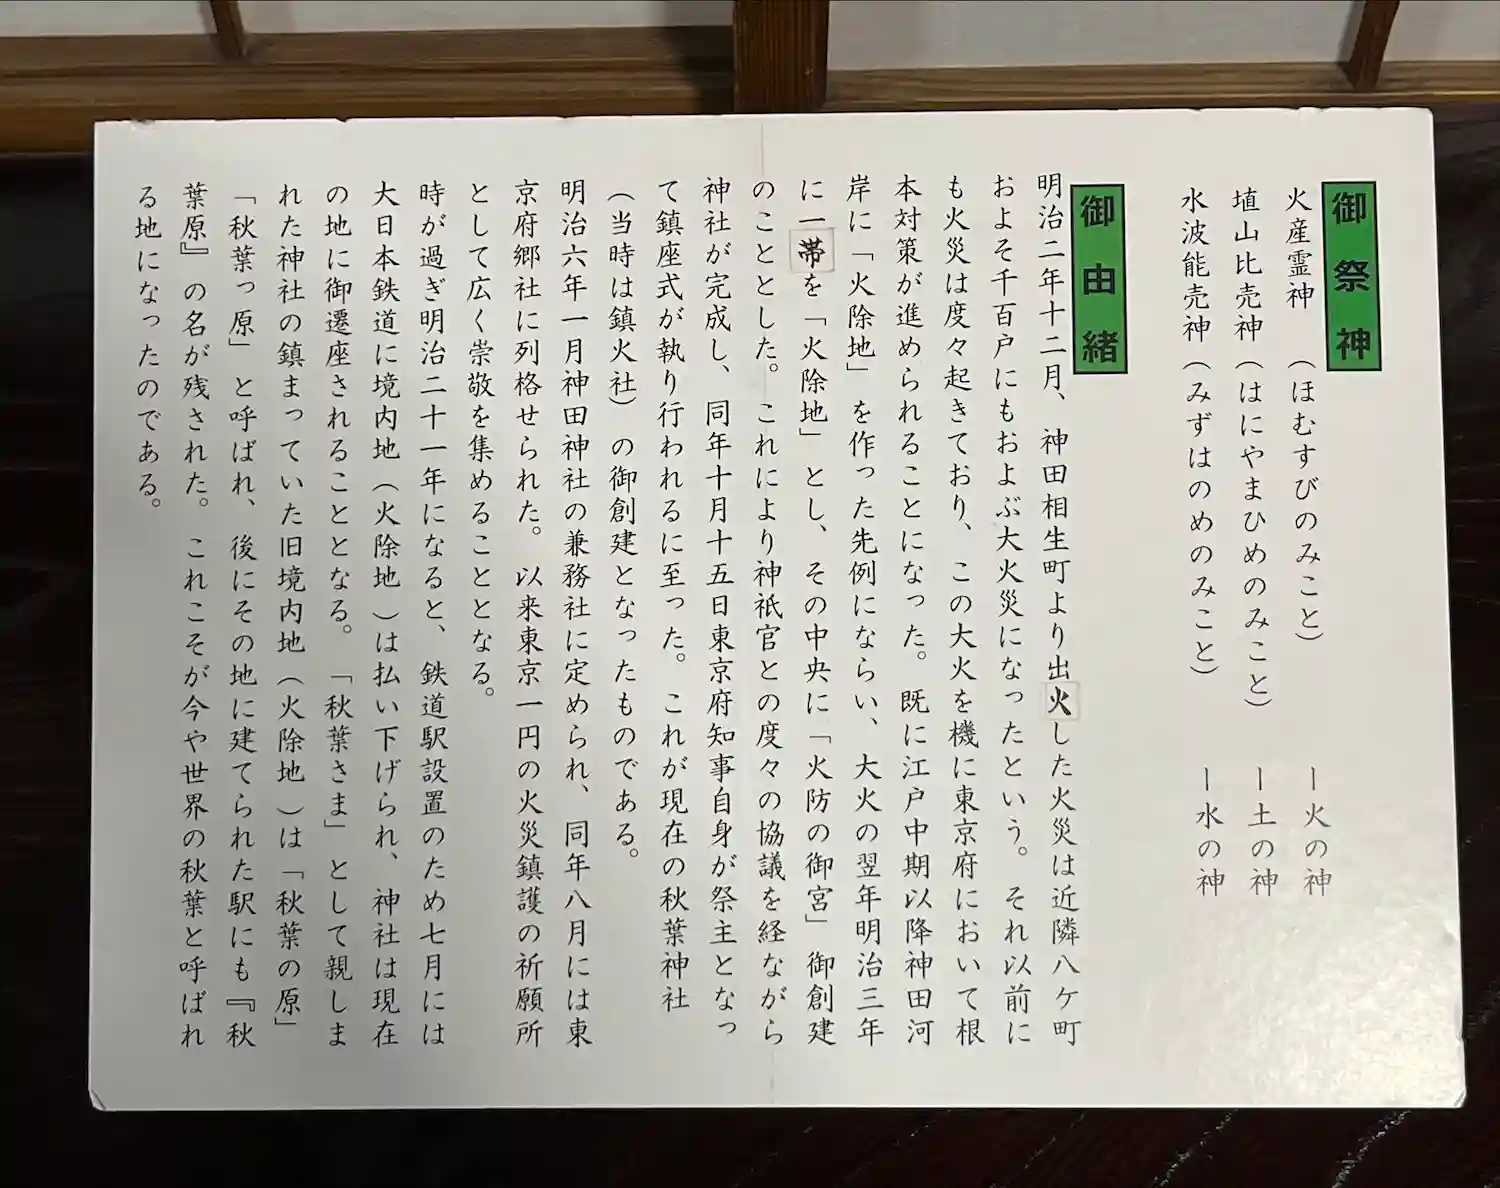 御祭神
火産霊神　（ほむすびのみこと）　　　ー火の神
埴山比売神（はにやまひめのみこと）　ー土の神
水波能売神（みずはのめのみこと）　　ー水の神
御由緒
明治二年十二月、神田相生町より出火した火災は近隣八ケ町
およそ千百戸にもおよぶ大火災になったという。それ以前に
も火災は度々起きており、この大火を機に東京府において根
本対策が進められることになった。既に江戸中期以降神田河
岸に「火除地」を作った先例にならい、大火の翌年明治三年
に一帯を「火除地」とし、その中央に「火防の御宮」御創建
のこととした。これにより神祇官との度々の協議を経ながら
神社が完成し、同年十月十五日東京府知事自身が祭主となっ
て鎮座式が執り行われるに至った。これが現在の秋葉神社
（当時は鎮火社）の御創建となったものである。
明治六年一月神田神社の兼務社に定められ、同年八月には東
京府郷社に列格せられた。以来東京一円の火災鎮護の祈願所
として広く崇敬を集めることとなる。
時が過ぎ明治二十一年になると、鉄道駅設置のため七月には
大日本鉄道に境内地（火除地）は払い下げられ、神社は現在
の地に御遷座されることとなる。「秋葉さま」として親しま
れた神社の鎮まっていた旧境内地（火除地）は「秋葉の原」
「秋葉っ原」と呼ばれ、後にその地に建てられた駅にも『秋
葉原』の名が残された。これこそが今や世界の秋葉と呼ばれ
る地になったのである。